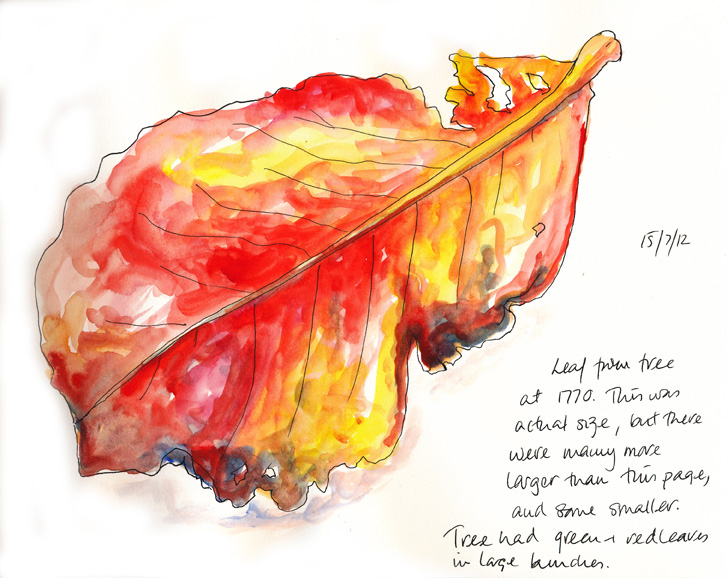 15/7/12
Leaf from tree
at 1770. This was
actual size, but there
were many more
larger than this page,
and some smaller.
Tree had green + red leaves
in large bunches.